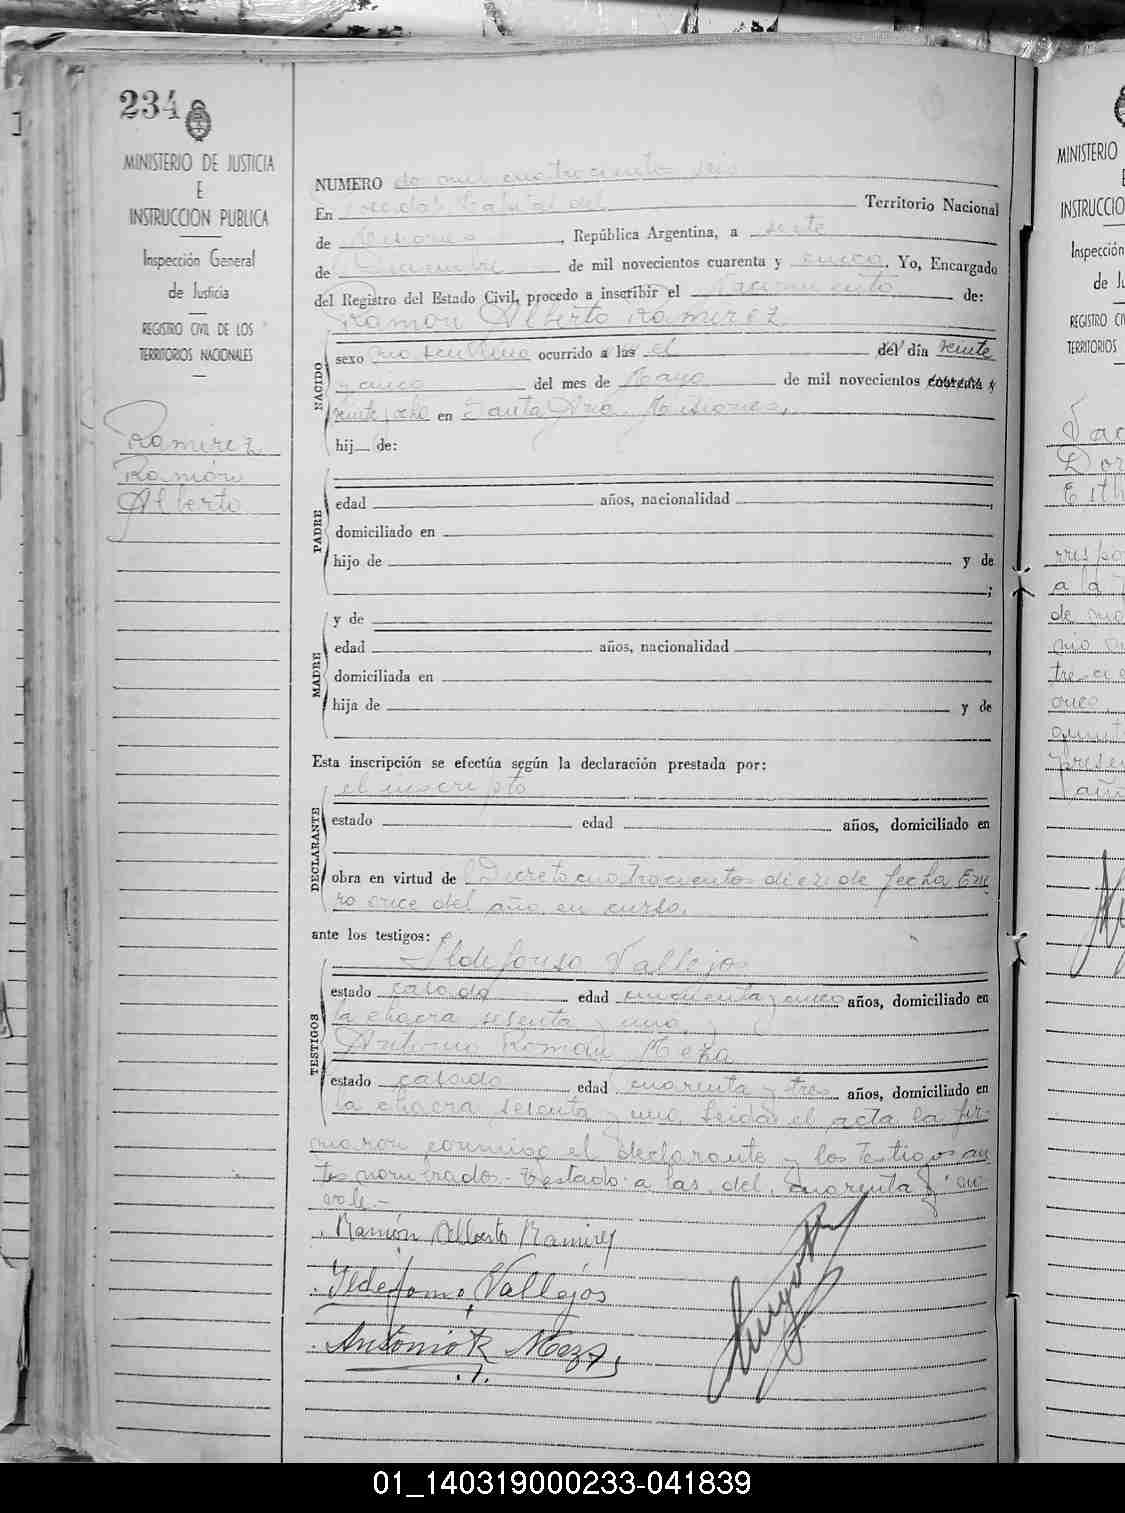 234
MINISTERIO DE JUSTICIA
E
INSTRUCCION PUBLICA
Inspección General
de Justicia
REGISTRO CIVIL DE LOS
TERRITORIOS NACIONALES
Ramirez
Ramón
Alberto
NUMERO dos mil cuatrocientos seis
En Posadas Capital del Territorio Nacional
de Misiones, República Argentina, a siete
de de mil novecientos cuarenta y cinco. Yo, Encargado
del Registro del Estado Civil, procedo a inscribir el Nacimiento de:
Ramon Alberto Ramirez
NACIDO
sexo masculino ocurrido a las el del día veinte
y cinco del mes de Mayo de mil novecientos cuarenta y
veinte y ocho en Santa Ana, Misiones,
hij de:
PADRE
edad años, nacionalidad ,
domiciliado en
hijo de y de
;
MADRE
y de
edad años, nacionalidad ,
domiciliada en
hija de y de
Esta inscripción se efectúa según la declaración prestada por:
el inscripto
DECLARANTE
estado edad años, domiciliado en
obra en virtud de Decreto cuatrocientos diez de fecha Ene
ro once del año en curso.
ante los testigos:
Ildefonso Vallejos
TESTIGOS
estado casado edad cincuenta y cinco años, domiciliado en
la chacra sesenta y uno, y
Antonio Román Meza
estado casado edad cuarenta y tres años, domiciliado en
la chacra sesenta y uno. Leida el acta la fir-
maron conmigo el declarante y los testigos an
tes nombrados.- Testado: a las, del, cuarenta y: no
vale.-
Ramón Alberto Ramirez
Ildefonso Vallejos
Antonio R Meza
MINISTERIO
INSTRUCCIO
Inspección
de Ju
REGISTRO CIV
TERRITORIOS
Esth
a la
de
01_140319000233-041839